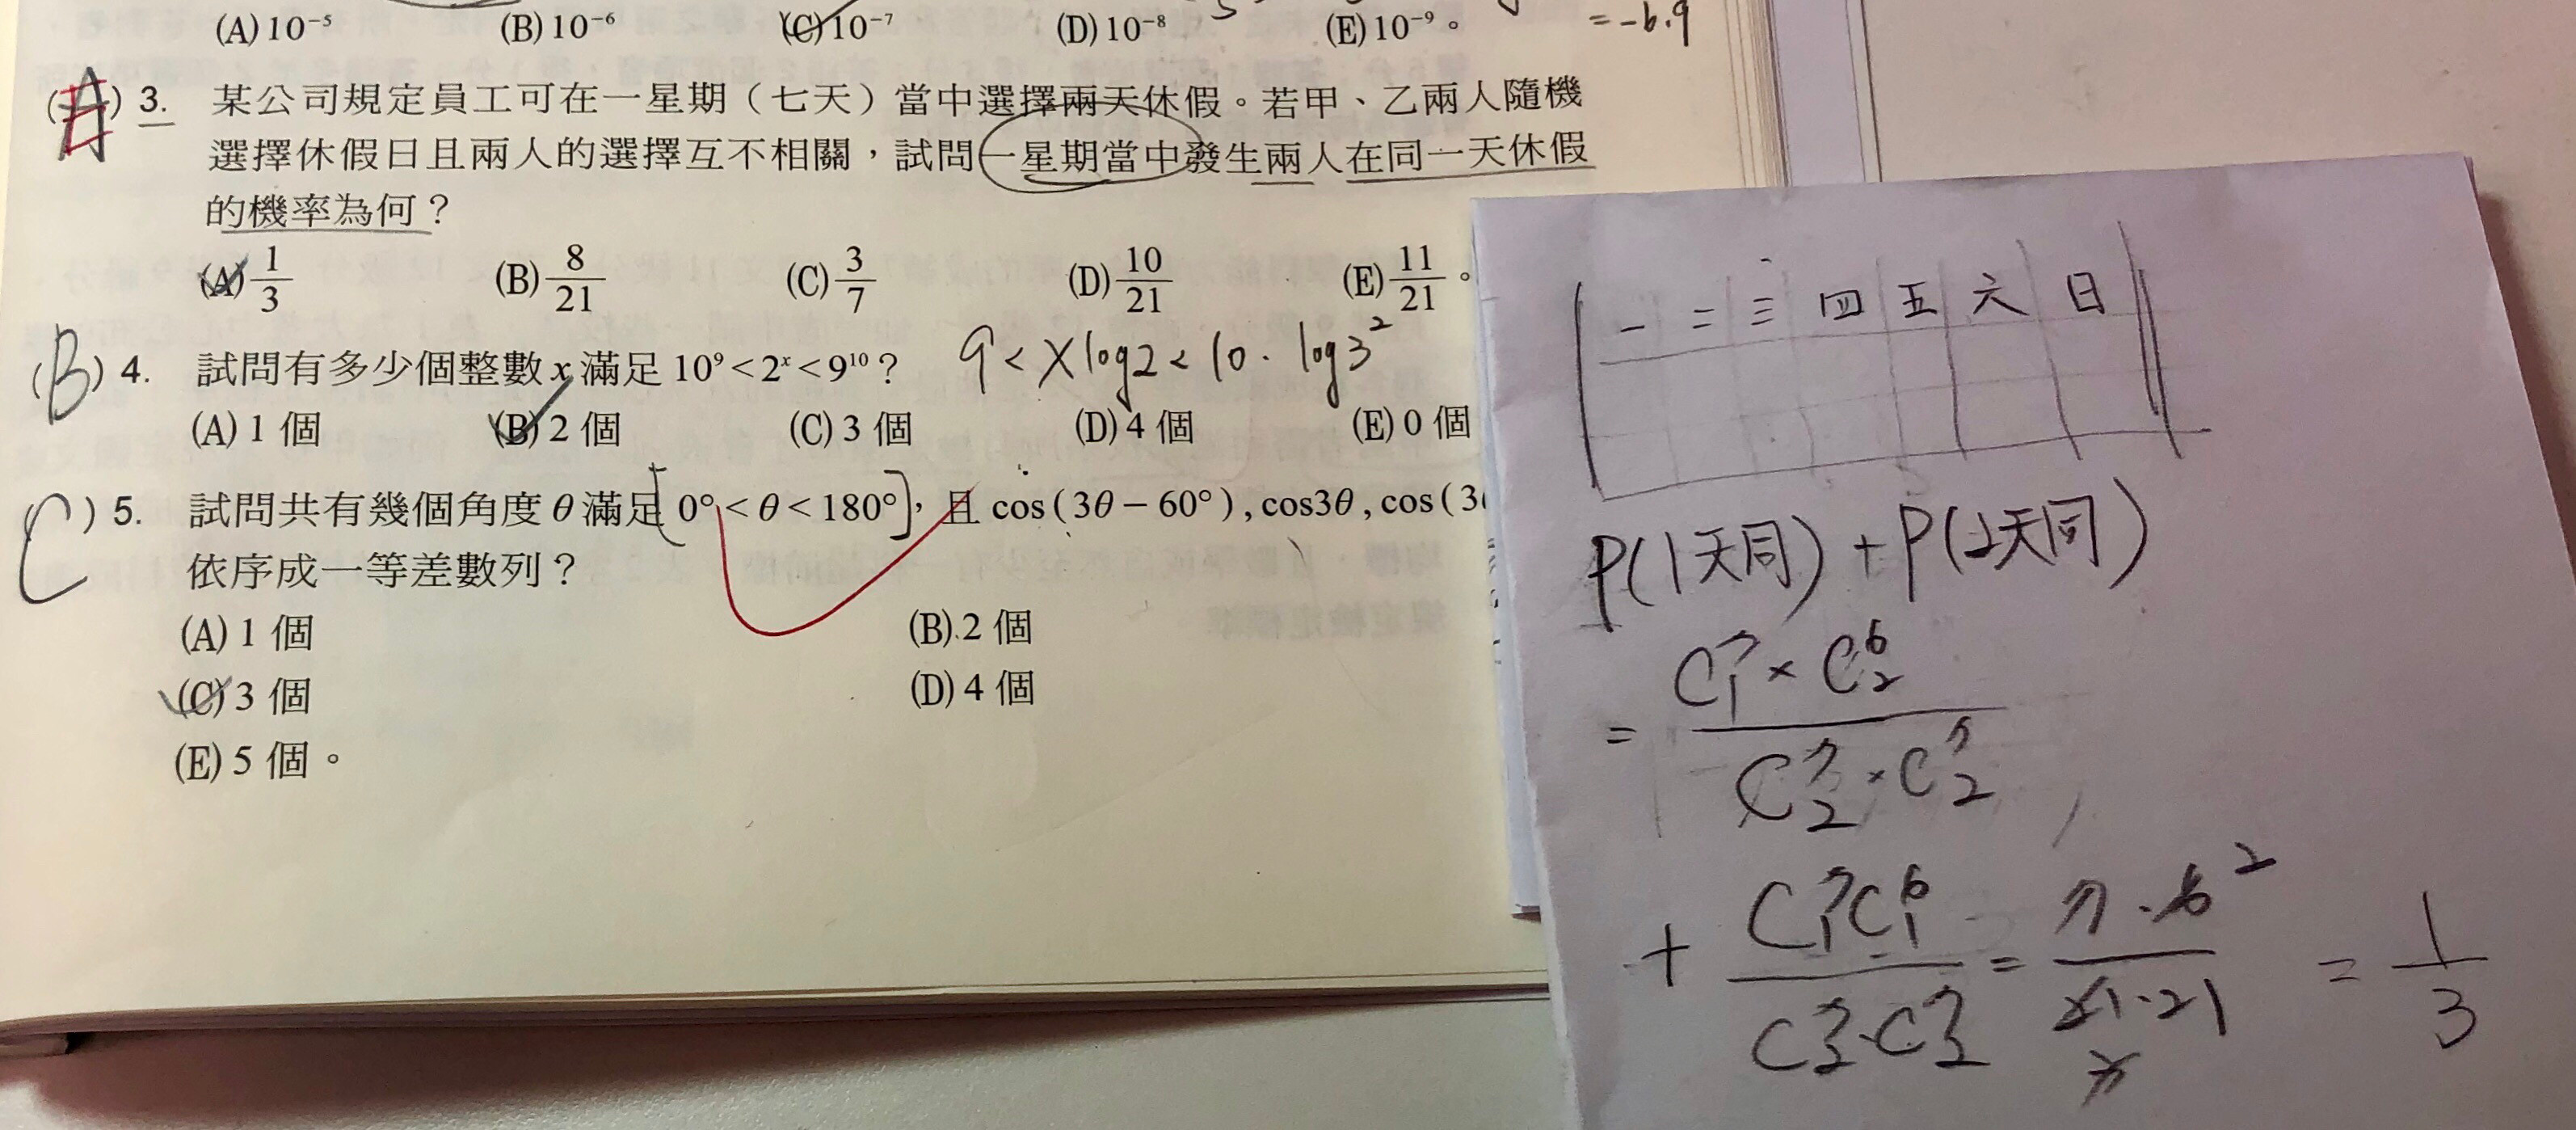 (A) 10⁻⁵ (B) 10⁻⁶ (C) 10⁻⁷ (D) 10⁻⁸ (E) 10⁻⁹。
= -6.9
( ) 3. 某公司規定員工可在一星期（七天）當中選擇兩天休假。若甲、乙兩人隨機
選擇休假日且兩人的選擇互不相關，試問一星期當中發生兩人在同一天休假
的機率為何？
(A) 1/3 (B) 8/21 (C) 3/7 (D) 10/21 (E) 11/21。
(B) 4. 試問有多少個整數 x 滿足 10⁹ < 2ˣ < 9¹⁰？ 9 < x log2 < 10 · log3²
(A) 1 個 (B) 2 個 (C) 3 個 (D) 4 個 (E) 0 個
(C) 5. 試問共有幾個角度 θ 滿足 [0° < θ < 180°]，且 cos(3θ − 60°), cos3θ, cos(3
依序成一等差數列？
(A) 1 個 (B) 2 個
(C) 3 個 (D) 4 個
(E) 5 個。
一 二 三 四 五 六 日
P(1天同) + P(2天同)
= C⁷₁ × C⁶₂ / C⁷₂ × C⁷₂
+ C⁷₁C⁶₁ / C⁷₂·C⁷₂ = 7·6² / 21·21 = 1/3